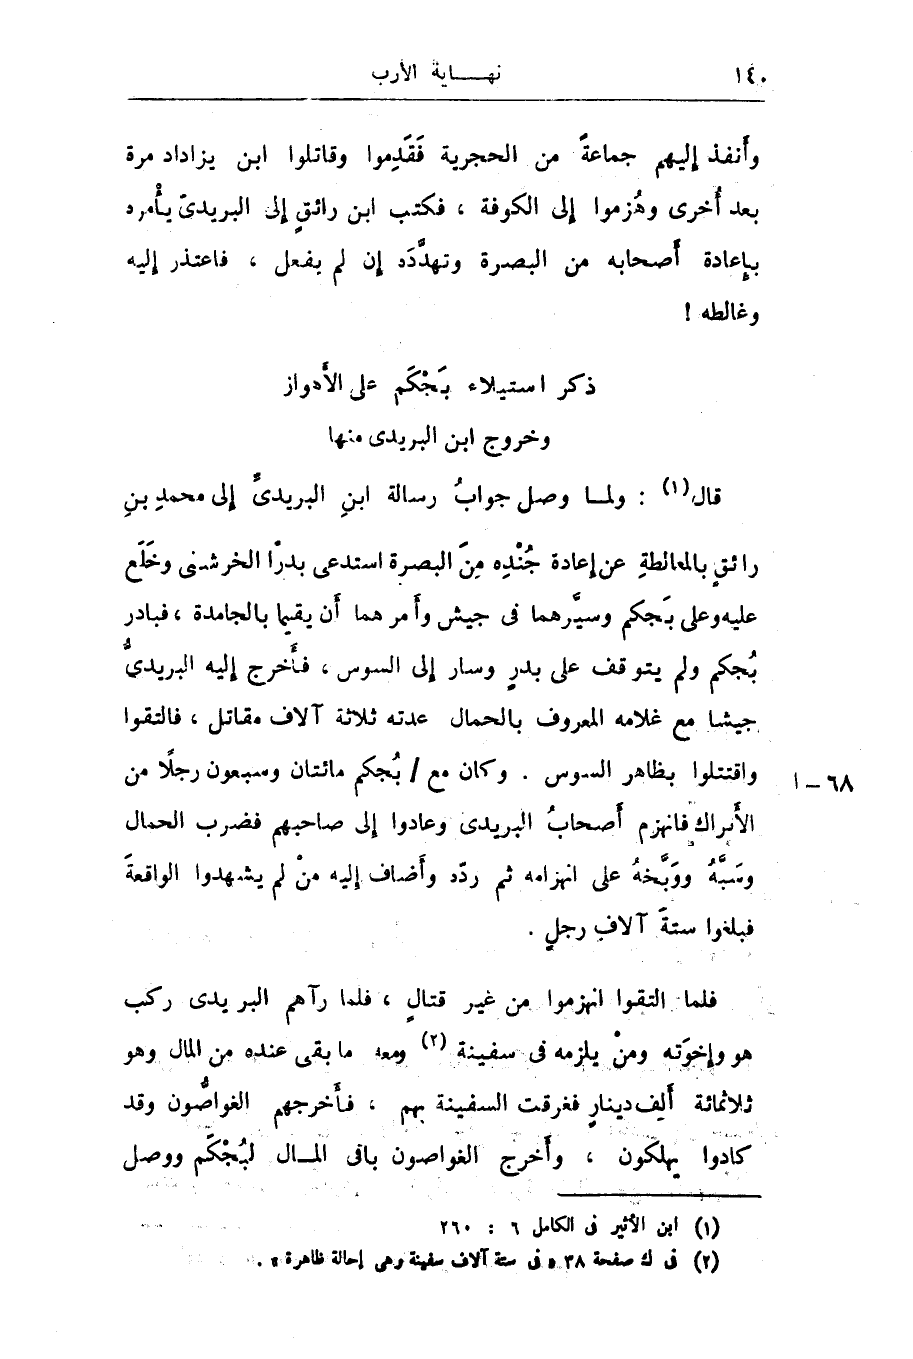 ١٤٠ نهـــاية الأرب
وأنفذ إليهم جماعةً من الحجرية فَقَدِموا وقاتلوا ابن يزاداد مرة
بعد أُخرى وهُزموا إلى الكوفة ، فكتب ابن رائقٍ إلى البريدىّ يأْمره
بإعادة أَصحابه من البصرة وتهدَّدَه إن لم يفعل ، فاعتذر إليه
وغالطه !
ذكر استيلاء بَجْكَم على الأَهواز
وخروج ابن البريدى منها
قال(١) : ولمــا وصل جوابُ رسالة ابنِ البريدىِّ إلى محمدِ بنِ
رائقٍ بالمغالطةِ عن إعادة جُنْدِه مِنَ البصرة استدعى بدرًا الخرشنى وخَلَع
عليه وعلى بَجكم وسيَّرهما فى جيش وأَمرهما أَن يقيما بالجامدة ، فبادر
بُجكم ولم يتوقف على بدرٍ وسار إلى السوس ، فأَخرج إليه البريدىُّ
جيشا مع غلامه المعروف بالحمال عدته ثلاثة آلاف مقاتل ، فالتقوا
واقتتلوا بظاهر السوس . وكان مع / بُجكم مائتان وسبعون رجلًا من
٦٨ – ا
الأَتراك فانهزم أَصحابُ البريدى وعادوا إلى صاحبهم فضرب الحمال
وسَبَّهُ ووَبَّخهُ على انهزامه ثم ردّه وأَضاف إليه منْ لم يشهدوا الواقعةَ
فبلغوا ستةَ آلافِ رجلٍ .
فلما التقوا انهزموا من غير قتالٍ ، فلما رآهم البريدى ركب
هو وإخوَته ومنْ يلزمه فى سفينة (٢) ومعه ما بقى عنده من المال وهو
ثلاثمائة أَلِف دينارٍ فغرقت السفينة بهم ، فأَخرجهم الغواصُّون وقد
كادوا يهلكون ، وأَخرج الغواصون باقى المــال لبُجْكَم ووصل
(١) ابن الأثير فى الكامل ٦ : ٢٦٠
(٢) فى ك صفحة ٣٨ « فى ستة آلاف سفينة وهى إحالة ظاهرة » .